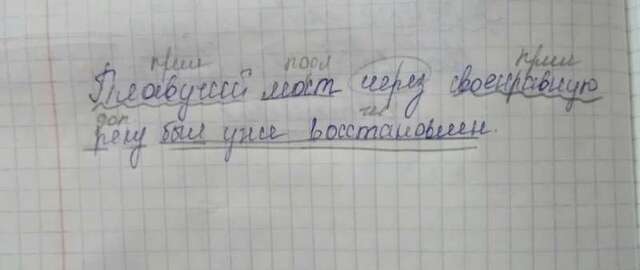 прил прил
Плавучий мост через своенравную
доп
реку был уже восстановлен.